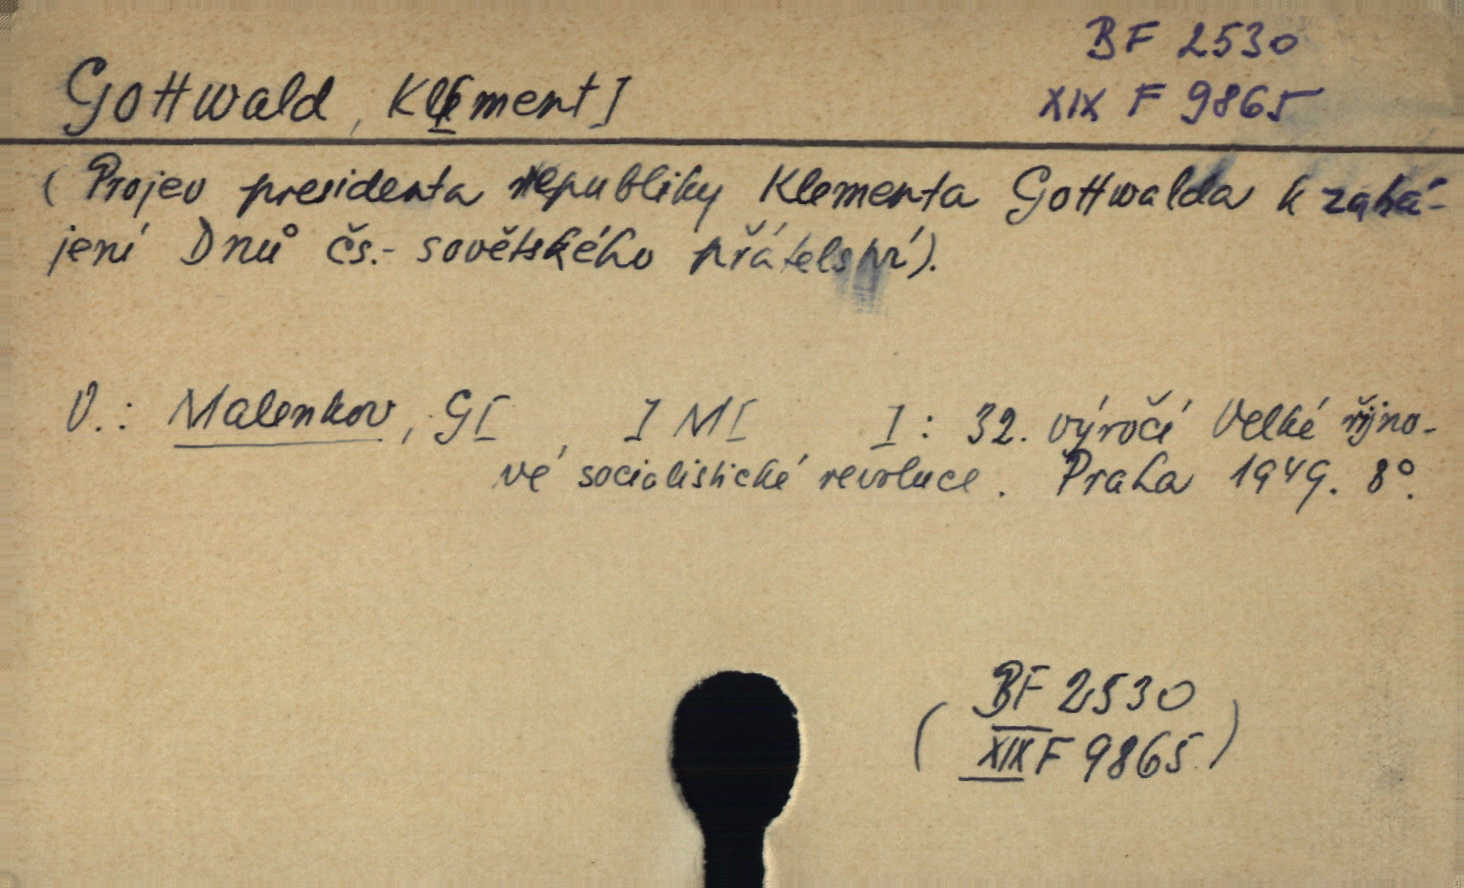 BF 2530
XIX F 9865
Gottwald, Kl[ement]
(Projev presidenta republiky Klementa Gottwalda k zahá-
jení Dnů čs.-sovětského přátelství).
V.: Malenkov, G[ , ] M[ ]: 32. výročí Velké říjno-
vé socialistické revoluce. Praha 1949. 8°.
(BF 2530
XIX F 9865)